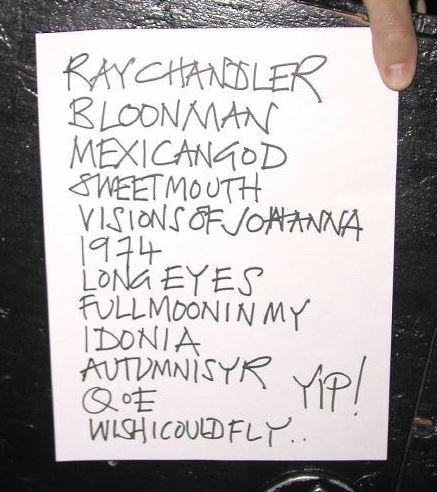 RAY CHANDLER
BLOONMAN
MEXICAN GOD
SWEET MOUTH
VISIONS OF JOHANNA
1974
LONG EYES
FULL MOON IN MY
IDONIA
AUTUMN IS YR
Q OE
WISH I COULD FLY..
YIP!